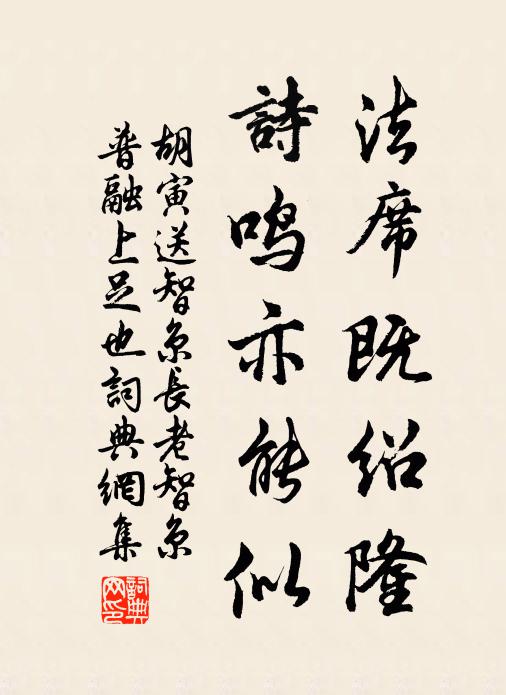 法席既紹隆
詩鳴亦能似
胡寅送智京長老智京
普融上足也詞典網集
詞典网印